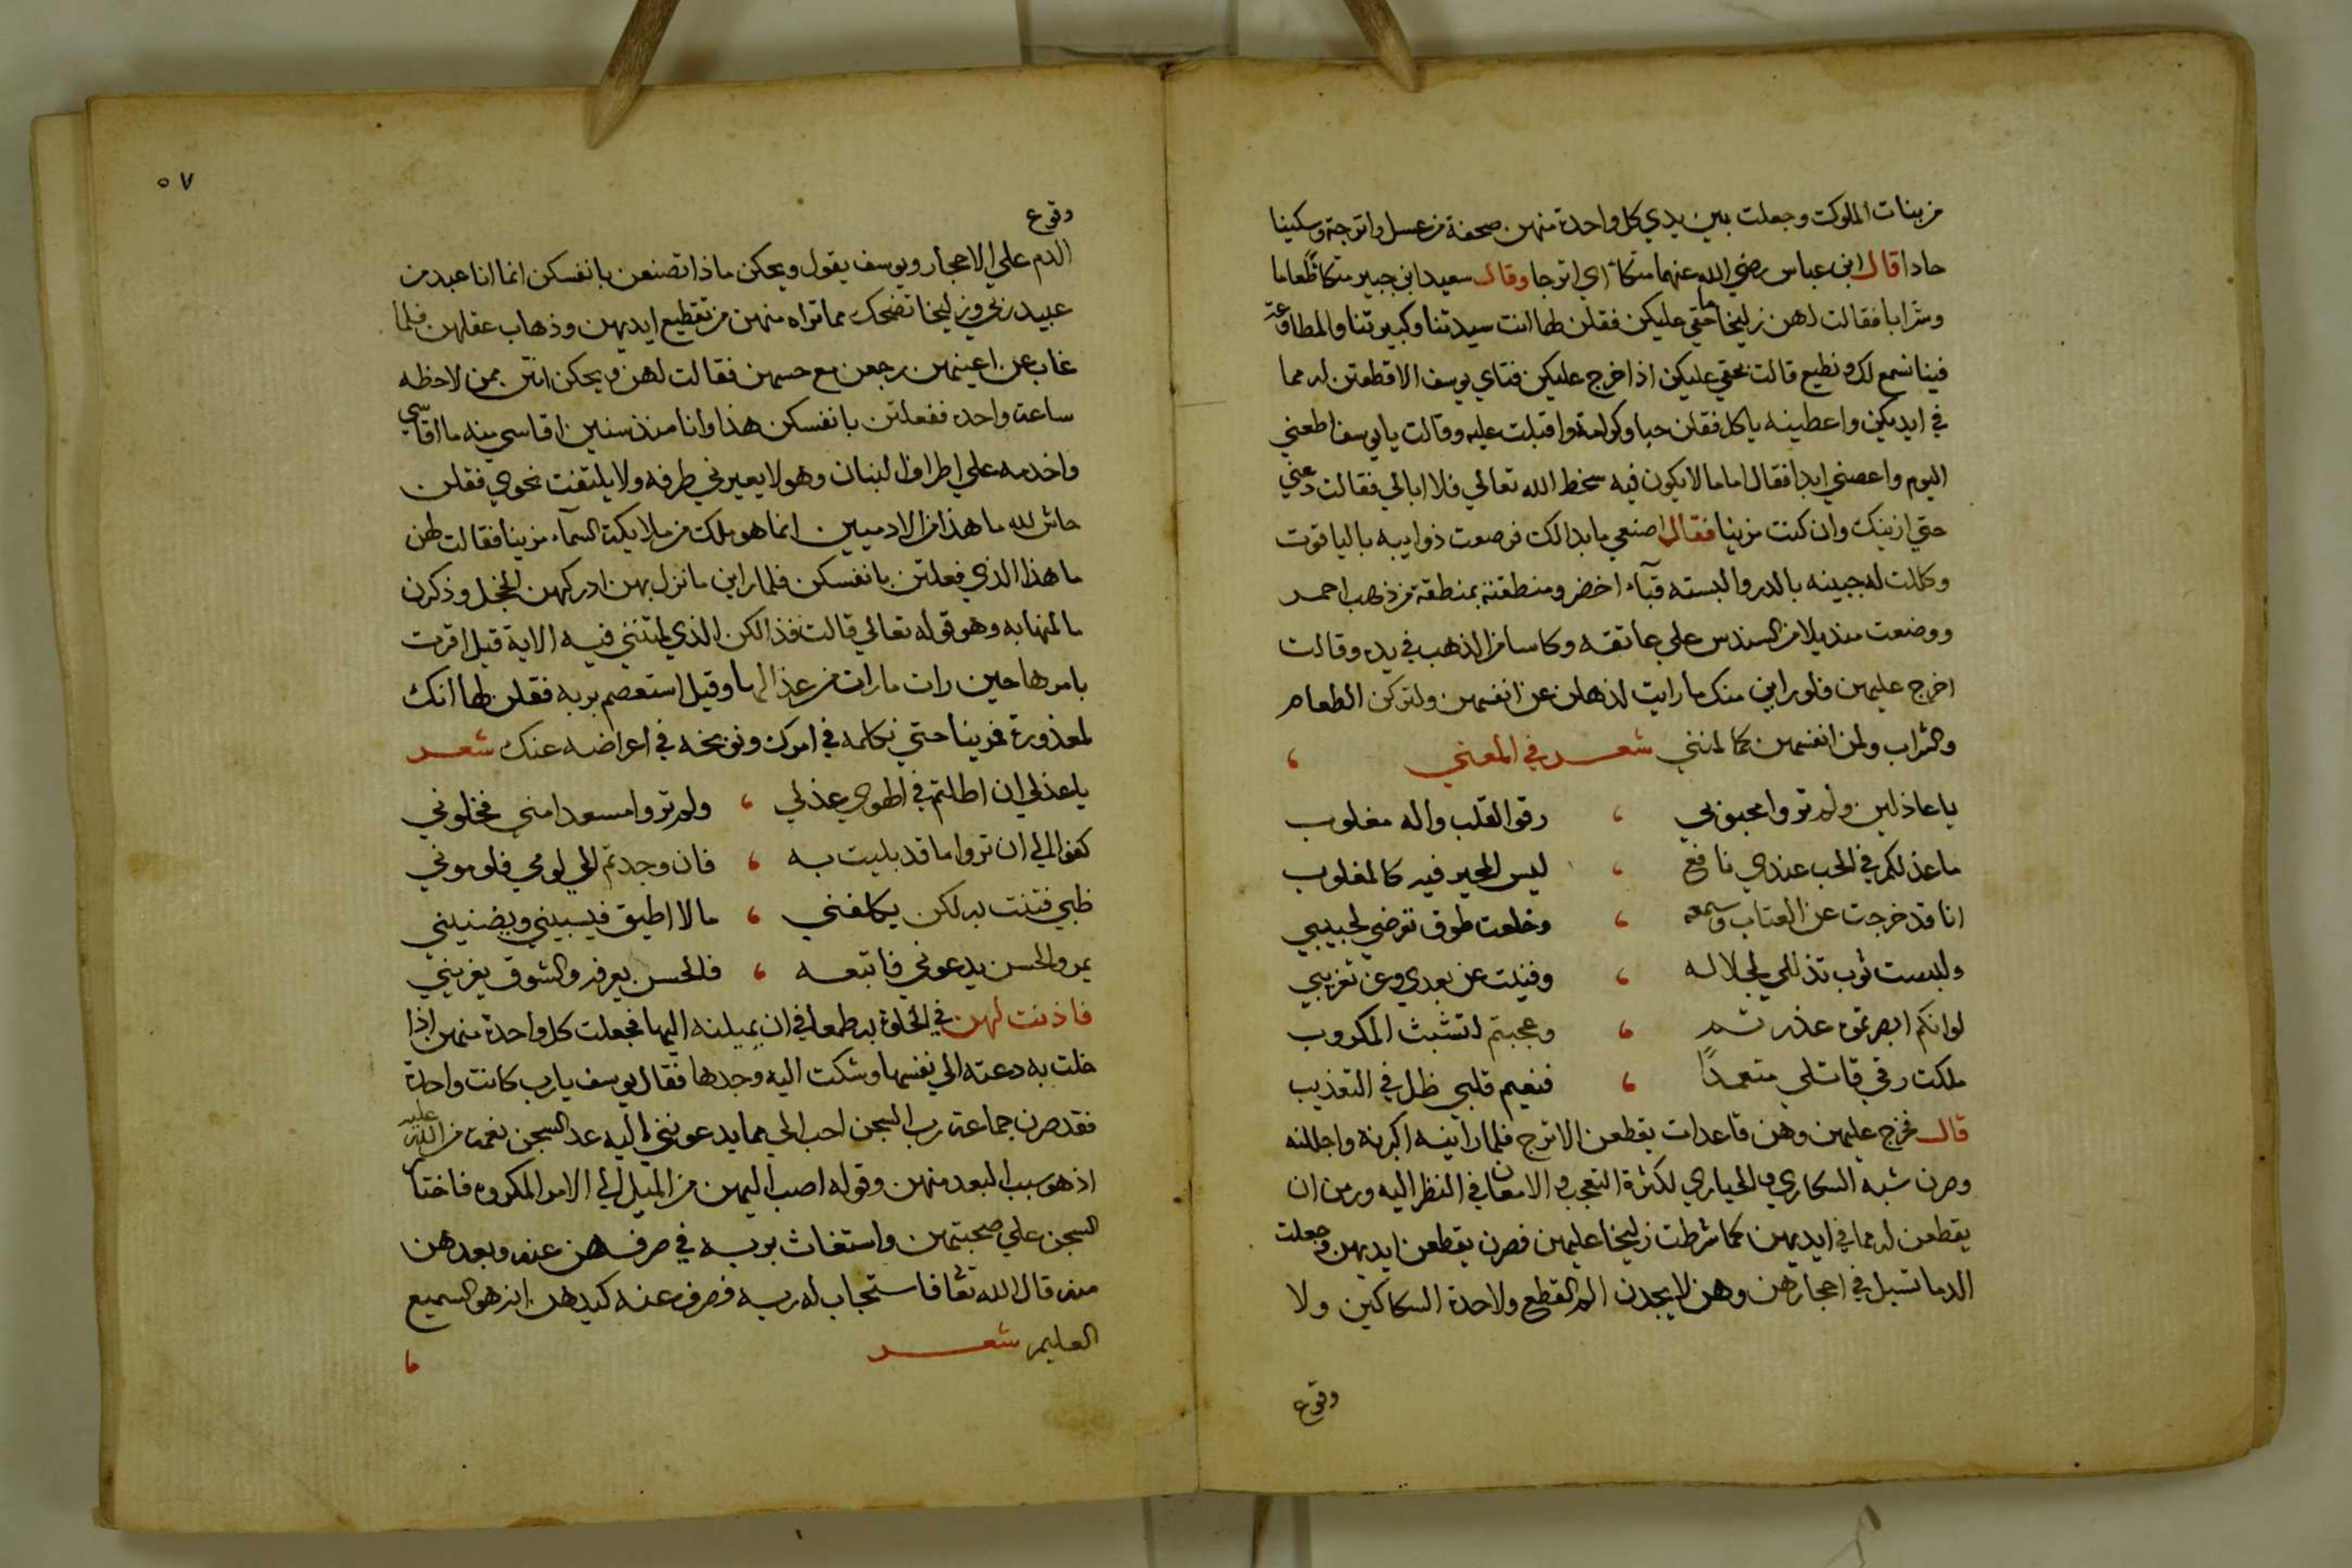 من بنات الملوك وجعلت بين يدي كل واحدة منهن صحفة من عسل واترجة وسكينا
حادا قال ابن عباس رضي الله عنهما متكأ اي اترجا وقال سعيد ابن جبير متكا طعاما
وشرابا فقالت لهن زليخا ما حقي عليكن فقلن لها انت سيدتنا وكبيرتنا والمطاعة
فينا نسمع لك ونطيع قالت بحقي عليكن اذا خرج عليكن فتاي يوسف الا قطعتن له مما
في ايديكن واعطينه ياكل فقلن حبا وكرامة واقبلت عليه وقالت يا يوسف اطعني
اليوم واعصني ابدا فقال اما ما لا يكون فيه سخط الله تعالي فلا ابالي فقالت دعني
حتي ازينك وان كنت مزينا فقال اصنعي ما بدالك فرصعت ذوايبه بالياقوت
وكللت له جبينه بالدر والبسته قبآء اخضر ومنطقته بمنطقة من ذهب احمر
ووضعت منديلا من السندس علي عاتقه وكاسا من الذهب في يده وقالت
اخرج عليهن فلو راين منك ما رايت لذهلن عن انفسهن ولتركن الطعام
والشراب ولمن انفسهن كما لمنني شعر في المعني
يا عاذلين ولم تروا محبوبي ، رقوا لقلب واله مغلوب
ما عذلكم في الحب عندي نافع ، ليس المحير فيه كالمغلوب
انا قد خرجت عن العتاب وسمعه ، وخلعت طوق تعرضي لحبيبي
ولبست ثوب تذللي لجلاله ، وفنيت عن بعدي وعن تقريبي
لو انكم ابصرتموه عذرتم ، وعجبتم لتشبث المكروب
ملكت رقي قاتلي متعمدًا ، فنعيم قلبي ظل في التعذيب
قال فخرج عليهن وهن قاعدات يقطعن الاترج فلما راينه اكبرنه واجللنه
وصرن شبه السكاري والحياري لكثرة التعجب والامعان في النظر اليه ورمن ان
يقطعن له مما في ايديهن كما شرطت زليخا عليهن فصرن يقطعن ايديهن وجعلت
الدما تسيل في احجارهن وهن لا يجدن الم القطع ولا حدة السكاكين ولا
وقوع
٥٧
وقوع
الدم علي الاحجار ويوسف يقول ويحكن ماذا تصنعن بانفسكن انما انا عبد من
عبيد ربي وزليخا تضحك مما تراه منهن من تقطيع ايديهن وذهاب عقلهن فلما
غاب عن اعينهن رجعن مع حسهن فقالت لهن ويحكن انتن ممن لاحظه
ساعة واحده ففعلتن بانفسكن هذا وانا منذ سنين اقاسي منه ما اقاسي
واخدمه علي اطراف البنان وهو لا يعيرني طرفه ولا يلتفت نحوي فقلن
حاش لله ما هذا من الادميين انما هو ملك من ملايكة السمآء مزينا فقالت لهن
ما هذا الذي فعلتن بانفسكن فلما راين ما نزل بهن ادركهن الخجل وذكرن
ما لمنها به وهو قوله تعالي قالت فذالكن الذي لمتنني فيه الاية قيل اقرت
بامرها حين رات ما رات من عذالها وقيل استعصم بربه فقلن لها انك
لمعذورة فمرينا حتي نكلمه في امرك ونوبخه في اعراضه عنك شعر
يا عذلي ان اطلتم في الهوي عذلي ، ولم تروا مسعدا مني فخلوني
كفوا الي ان تروا ما قد بليت به ، فان وجدتم الي لومي فلوموني
ظبي فتنت به لكن يكلفني ، ما لا اطيق فيسبيني ويضنيني
يمر والحسن يدعوني فاتبعه ، فالحسن يعرفه والشوق يغريني
فاذنت لهن في الخلوة به طمعا في ان يميلنه اليها فجعلت كل واحدة منهن اذا
خلت به دعته الي نفسها وشكت اليه وجدها فقال يوسف يا رب كانت واحدة
فقد صرن جماعة رب السجن احب الي مما يدعونني اليه عد السجن نعمة من الله عليه
اذ هو سبب البعد منهن وقوله اصب اليهن من الميل الي الامر المكروه فاختار
السجن علي صحبتهن واستغاث بربه في صرفهن عنه وبعدهن
منه قال الله تعا فاستجاب له ربه فصرف عنه كيدهن انه هو السميع
العليم شعر